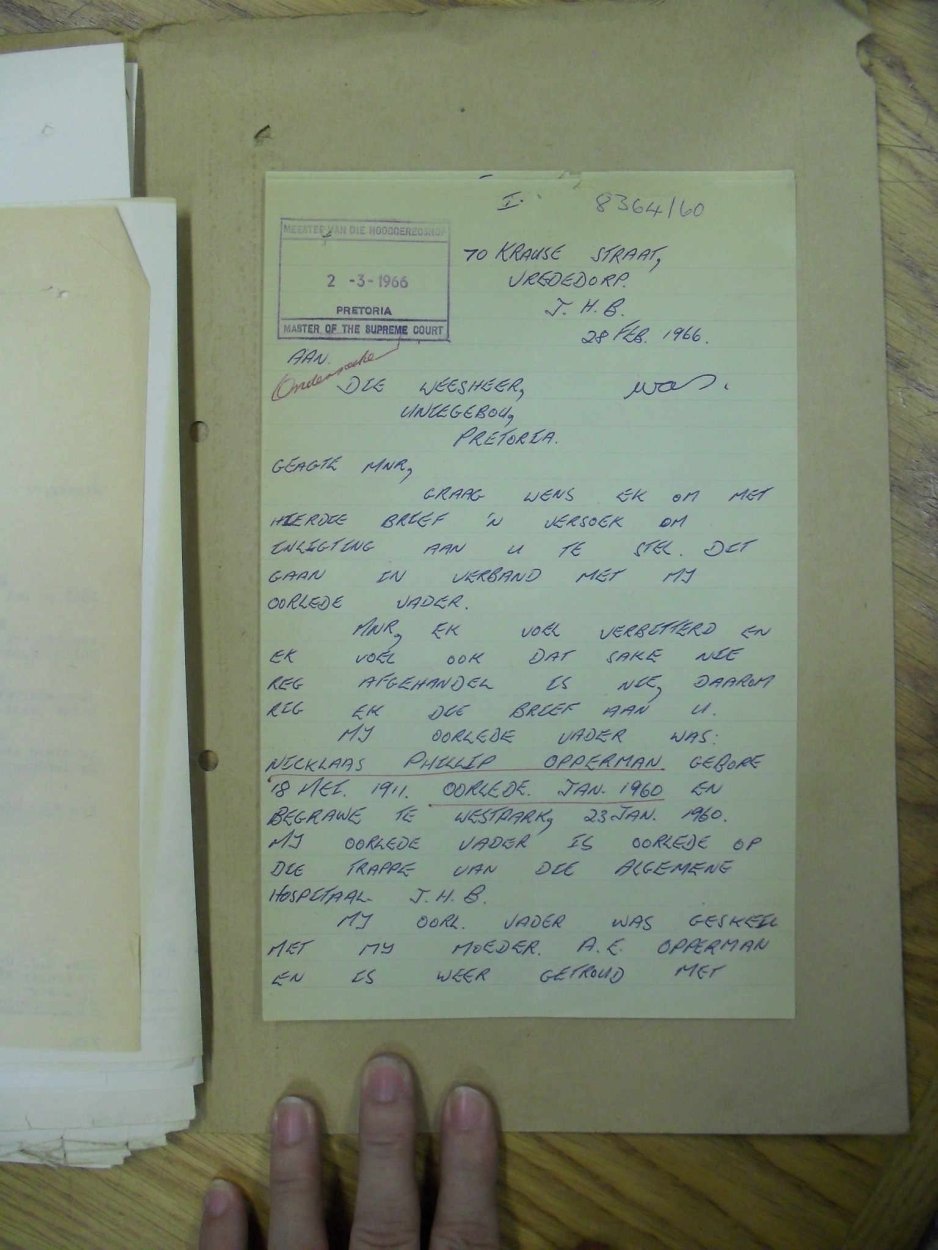 I. 8364/60
MEESTER VAN DIE HOOGGEREGSHOF
2 -3-1966
PRETORIA
MASTER OF THE SUPREME COURT
70 KRAUSE STRAAT,
VREDEDORP.
J.H.B.
28 FEB. 1966.
AAN.
DIE WEESHEER,
UNIEGEBOU,
PRETORIA.
GEAGTE MNR,
GRAAG WENS EK OM MET
HIERDIE BRIEF 'N VERSOEK OM
INLIGTING AAN U TE STEL. DIT
GAAN IN VERBAND MET MY
OORLEDE VADER.
MNR, EK VOEL VERBITTERD EN
EK VOEL OOK DAT SAKE NIE
REG AFGEHANDEL IS NIE, DAAROM
RIG EK DIE BRIEF AAN U.
MY OORLEDE VADER WAS:
NICKLAAS PHILLIP OPPERMAN. GEBORE
18 MEI. 1911. OORLEDE. JAN. 1960 EN
BEGRAWE TE WESTPARK, 23 JAN. 1960.
MY OORLEDE VADER IS OORLEDE OP
DIE TRAPPE VAN DIE ALGEMENE
HOSPITAAL J.H.B.
MY OORL. VADER WAS GESKEI
MET MY MOEDER. A.E. OPPERMAN
EN IS WEER GETROUD MET